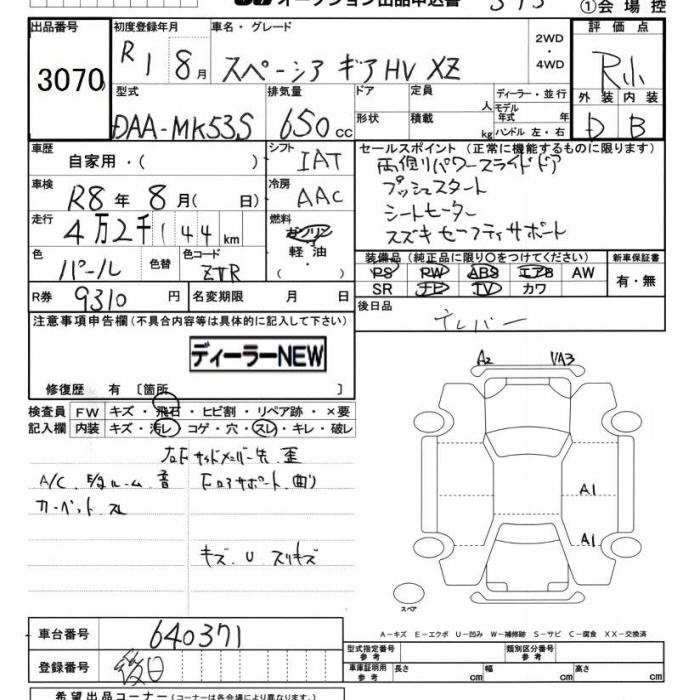 オークション出品申込書
①会場控
出品番号 初度登録年月 車名・グレード 評価点
3070 R1 8月 スペーシア ギア HV XZ 2WD・4WD R小
型式 排気量 ドア 定員 人 ディーラー・並行 外装 内装
DAA-MK53S 650cc 形状 積載 kg モデル年式 年 ハンドル 左・右 D B
車歴 自家用・( ) シフト IAT セールスポイント (正常に機能するものに限ります)
両側パワースライドドア
車検 R8年 8月( 日) 冷房 AAC プッシュスタート
シートヒーター
走行 4万2千144km 燃料 ガソリン 軽油 ( ) スズキ セーフティサポート
色 パール 色替 色コード ZVR 装備品 (純正品に限り○をつけてください) 新車保証書
PS PW ABS エアB AW 有・無
SR ナビ TV カワ
R券 9310円 名変期限 月 日 後日品
注意事項申告欄(不具合内容等は具体的に記入して下さい) ナンバー
ディーラーNEW
修復歴 有 〔箇所 〕
A2 A3
検査員 FW キズ・飛石・ヒビ割・リペア跡・×要
記入欄 内装 キズ・汚レ・コゲ・穴・スレ・キレ・破レ
左F サイドメンバー先 歪
A/C ルーム 音 サポート 曲り
カーペット スレ
A1
A1
キズ U スリキズ
スペア
A-キズ E-エクボ U-凹み W-補修跡 S-サビ C-腐食 XX-交換済
車台番号 640371 型式指定番号 参考 類別区分番号 参考
登録番号 後日 車庫証明用 参考 長さ cm 幅 cm 高さ cm
希望出品コーナー(出品コーナーは各会場により